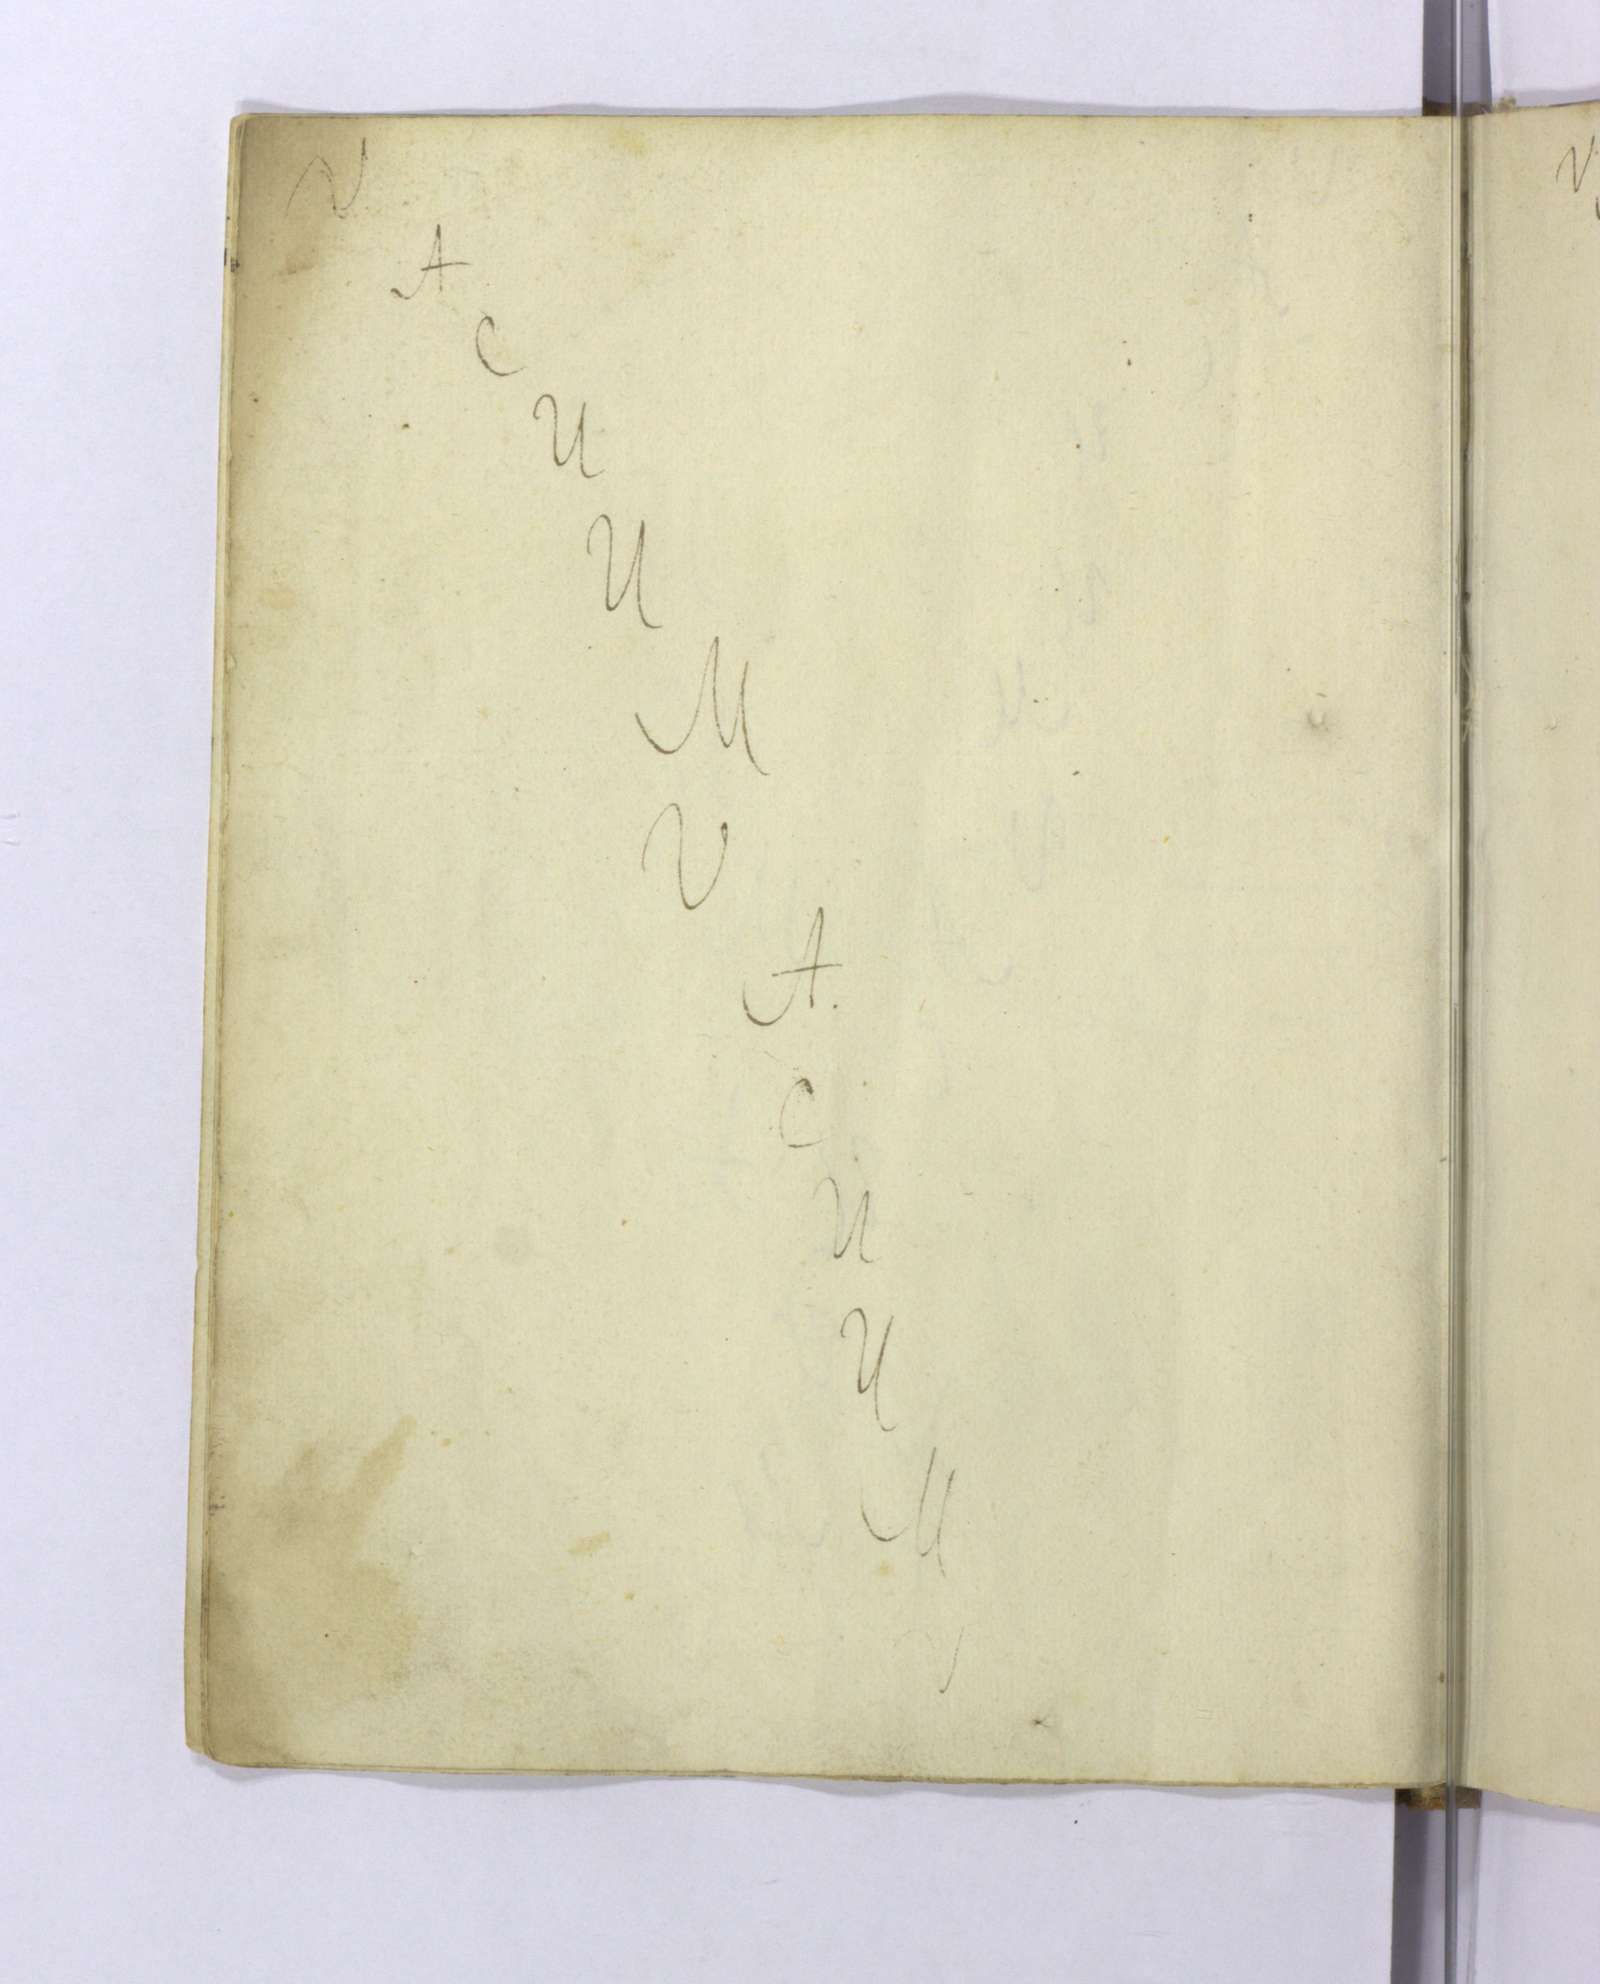 V
A
C
U
U
M
V
A
C
U
U
M
V